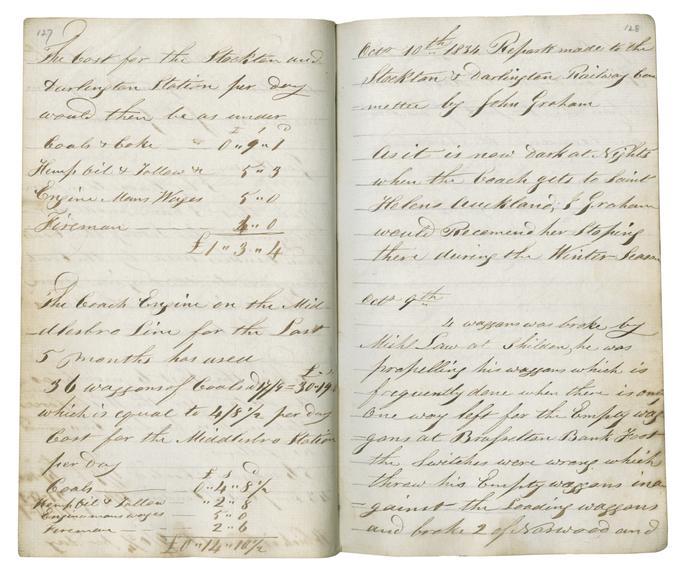 127
The Cost for the Stockton and
Darlington Station per day
would then be as under
£ s D
Coals & Coke = 0 " 9 " 1
Hemp Oil & Tallow & 5 " 3
Engine Mans Wages 5 " 0
Fireman 4 " 0
£1 " 3 " 4
The Coach Engine on the Mid-
dlesbro Line for the Last
5 Months has used
£ s
36 waggons of Coals
which is equal to 4/8 1/2 per day
Cost for the Middlesbro Station
per day
£ S D
Coals 0 " 4 " 8 1/2
Hemp Oil & Tallow " 2 " 8
Enginemans wages " 5 " 0
Fireman 2 " 6
£0 " 14 " 10 1/2
128
Octr 10th 1834 Report made to the
Stockton & Darlington Railway Com
=mettee by John Graham
As it is now Dark at Nights
when the Coach gets to Saint
Helens Auckland, J Graham
would Recomend her Stoping
there during the Winter Season
Octr 9th
4 waggons was broke by
Michl Law at Shildon, he was
propelling his waggons which is
frequently done when there is only
One way left for the Empty wag
=gons at Brusselton Bank Foot
the Switches were wrong which
threw his Empty waggons in a
=gainst the Loading waggons
and broke 2 of Norwood and